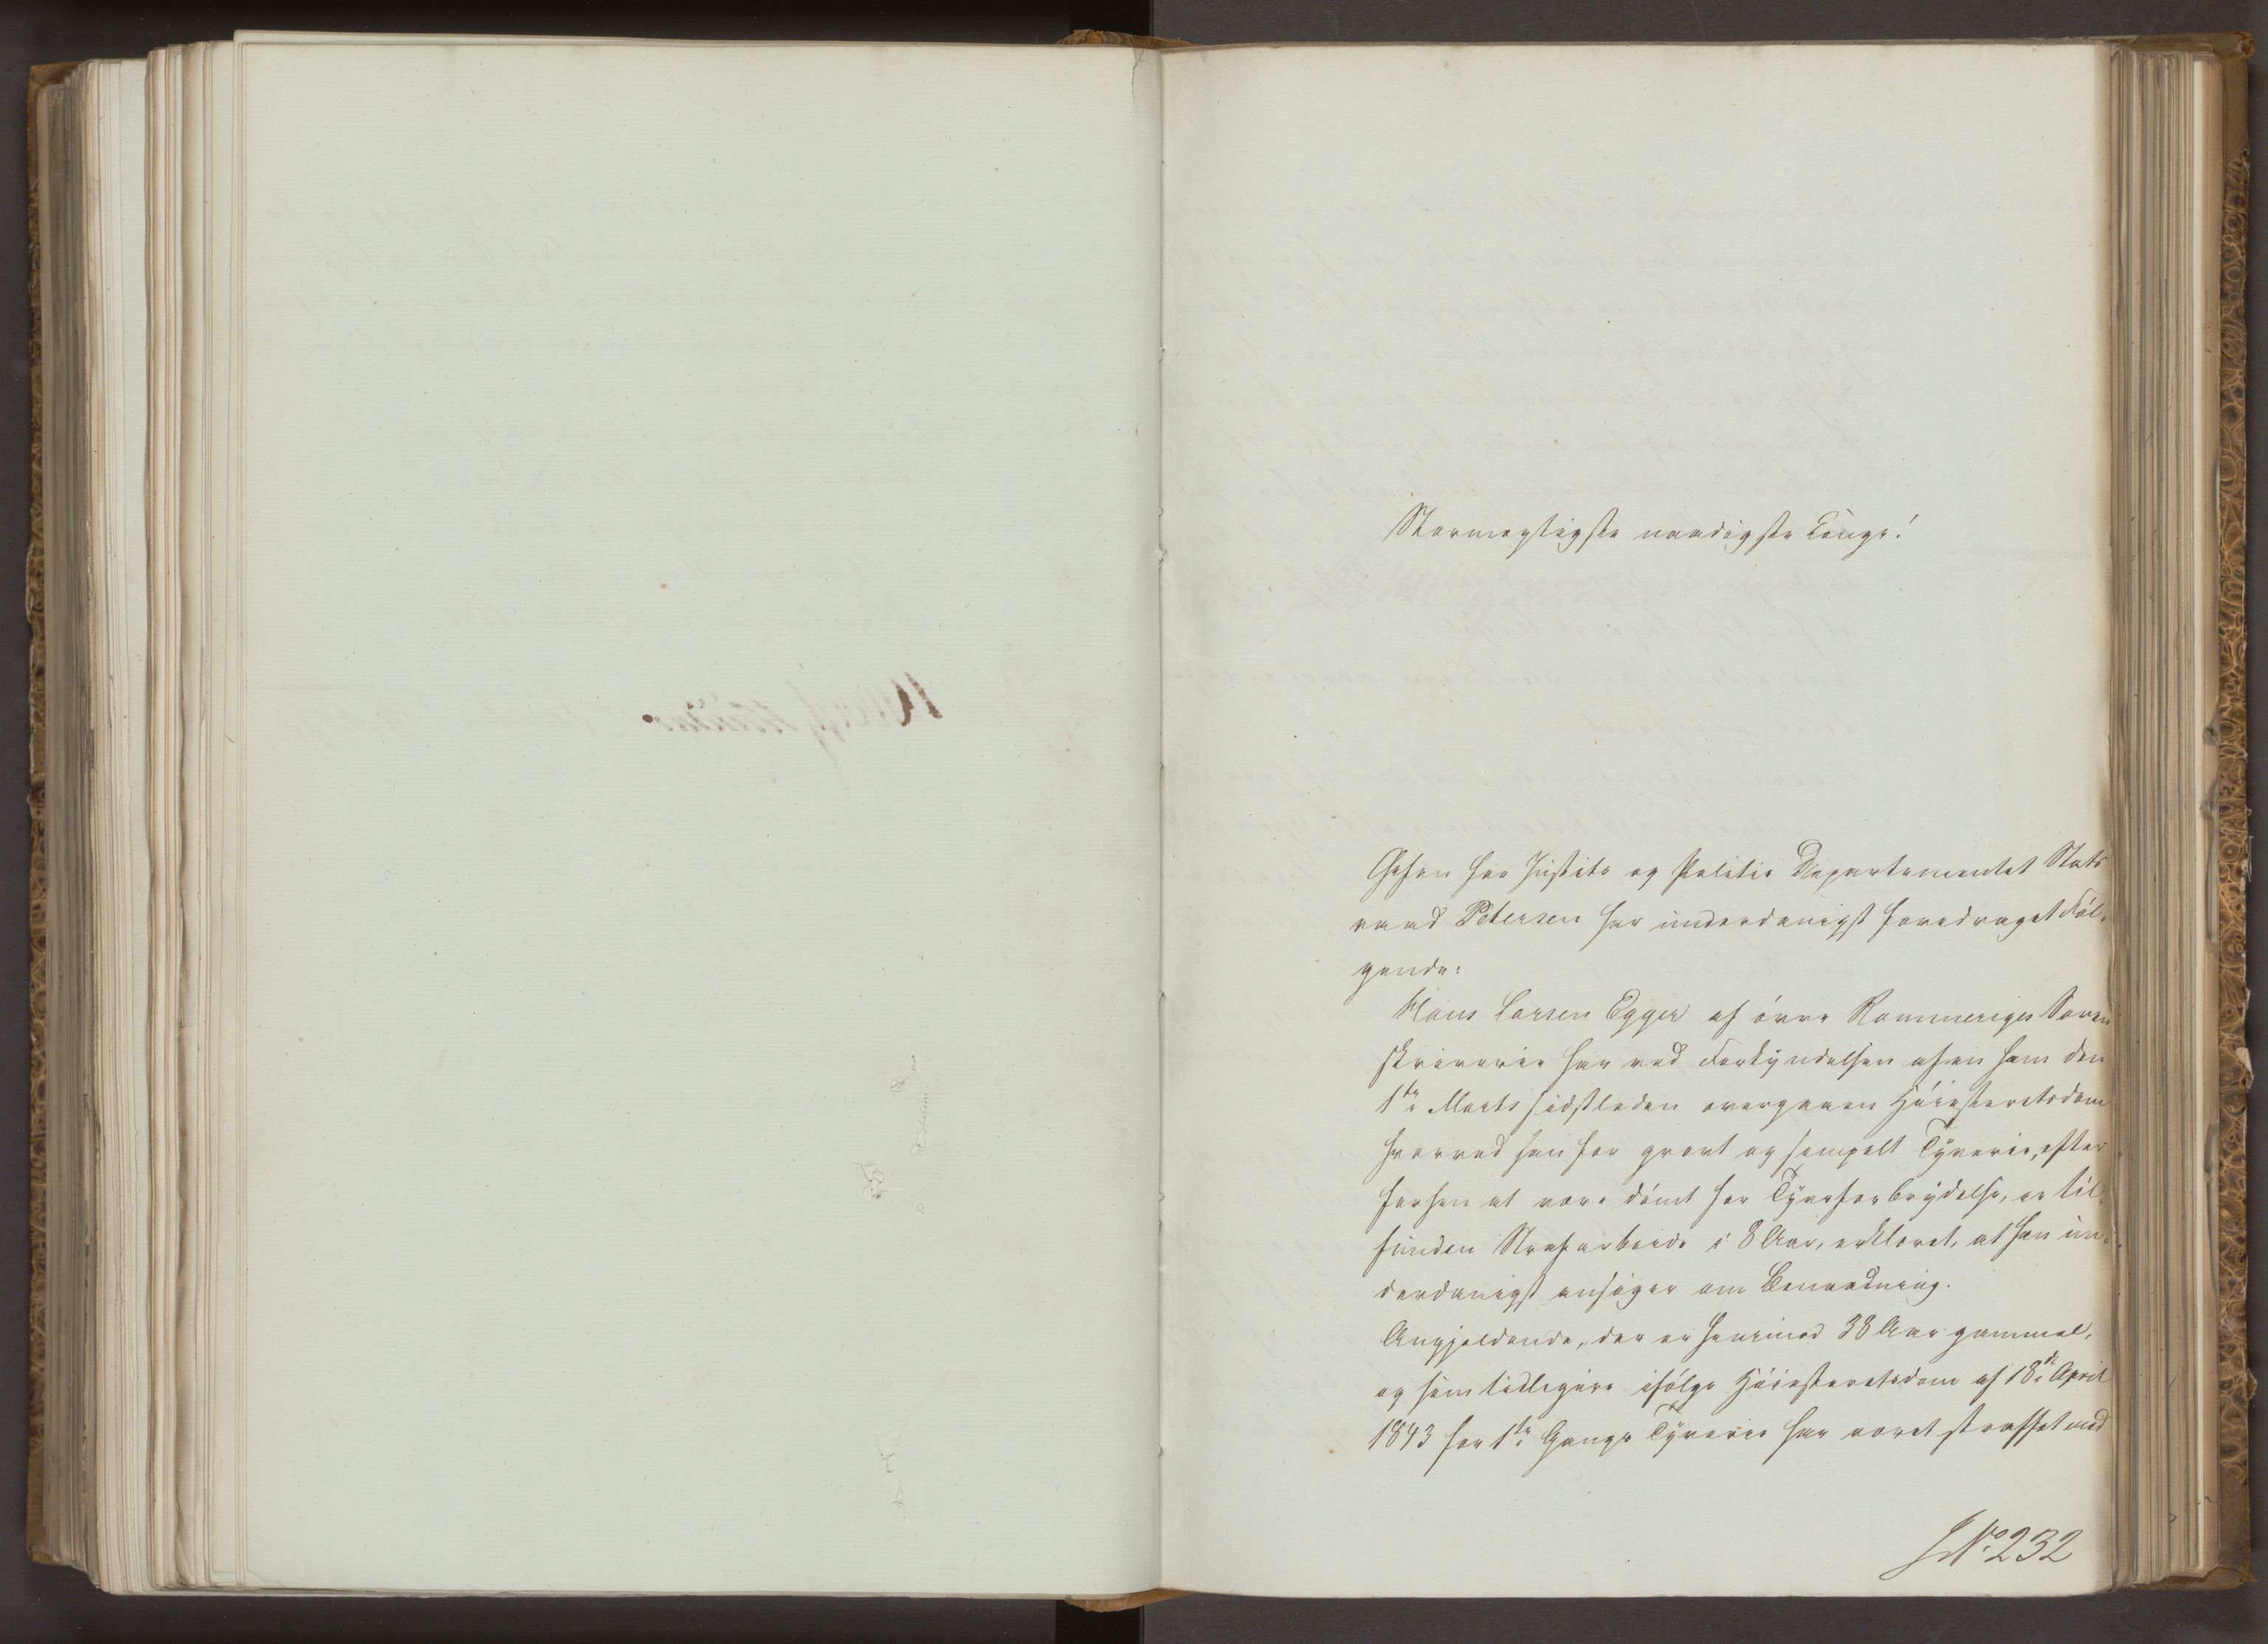 Stormægtigste naadigste Konge!
Chefen for Justits og Politie Departementet Stats
raad Petersen har underdanigst foredraget Føl-
gende:
Hans Larsen Egger af øvre Rommeriges Soren
skriverie har ved Forkyndelsen af en ham den
1ste Marts sidstleden overgaaen Høiesteretsdom
hvorved han for grovt og simpelt Tyverie, efter
forhen at være dømt for Tyvsforbrydelse, er til-
funden Strafarbeide i 8 Aar, erklæret, at han un-
derdanigst ansøger om Benaadning.
Angjeldende, der er henimod 38 Aar gammel,
og som tidligere ifølge Høiesteretsdom af 18de April
1843 for 1ste Gangs Tyverie har været straffet med
J. No. 232